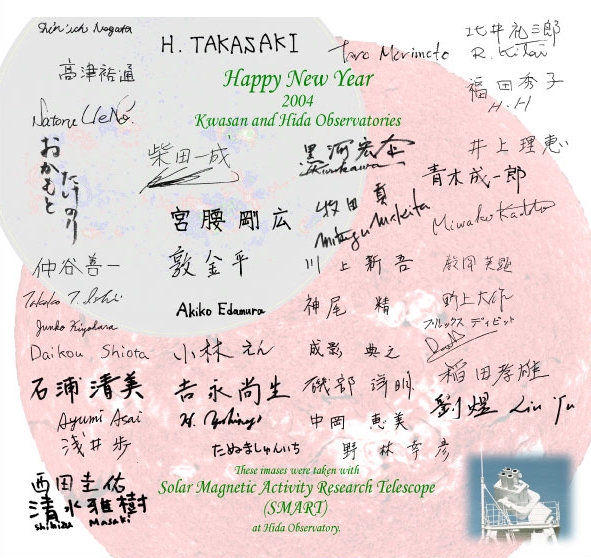 Shin'ichi Nagata
H. TAKASAKI
Taro Morimoto
北井礼三郎
R. Kitai
高津裕通
Happy New Year
2004
Kwasan and Hida Observatories
福田秀子
H.H
Natoru UeNo.
おかもと
たけのり
柴田一成
黒河宏企
Kurokawa
井上理恵
青木成一郎
宮腰剛広
牧田貢
Mitsugu Makita
Miwako Kadota
仲谷善一
敦金平
川上新吾
Takako T. Ishii
Akiko Edamura
神尾 精
野上大作
ブルックス デイビット
Junko Kiyohara
Daikou Shiota
小林えん
成影 典之
稲田孝雄
石浦清美
吉永尚生
磯部洋明
劉煜 Liu Yu
Ayumi Asai
浅井歩
中岡 恵美
たぬましゅんいち
野林幸彦
西田圭佑
清水雅樹
Shimizu Masaki
These imases were taken with
Solar Magnetic Activity Research Telescope
(SMART)
at Hida Observatory.